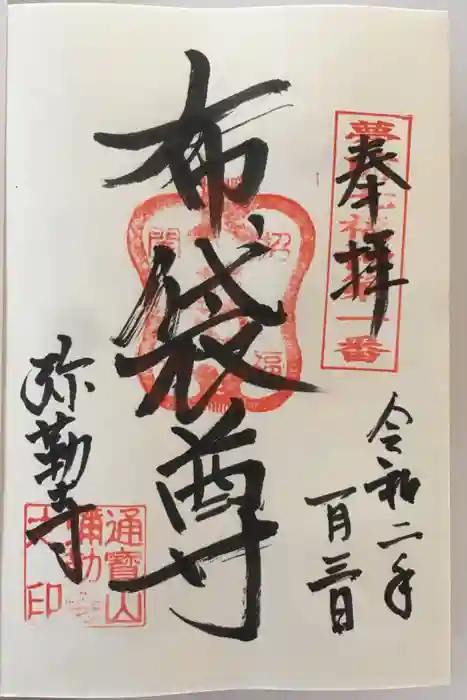 奉拝
令和二年
一月三日
布袋尊
弥勒寺
招
福
開
一番
通寶山
弥勒寺
之印